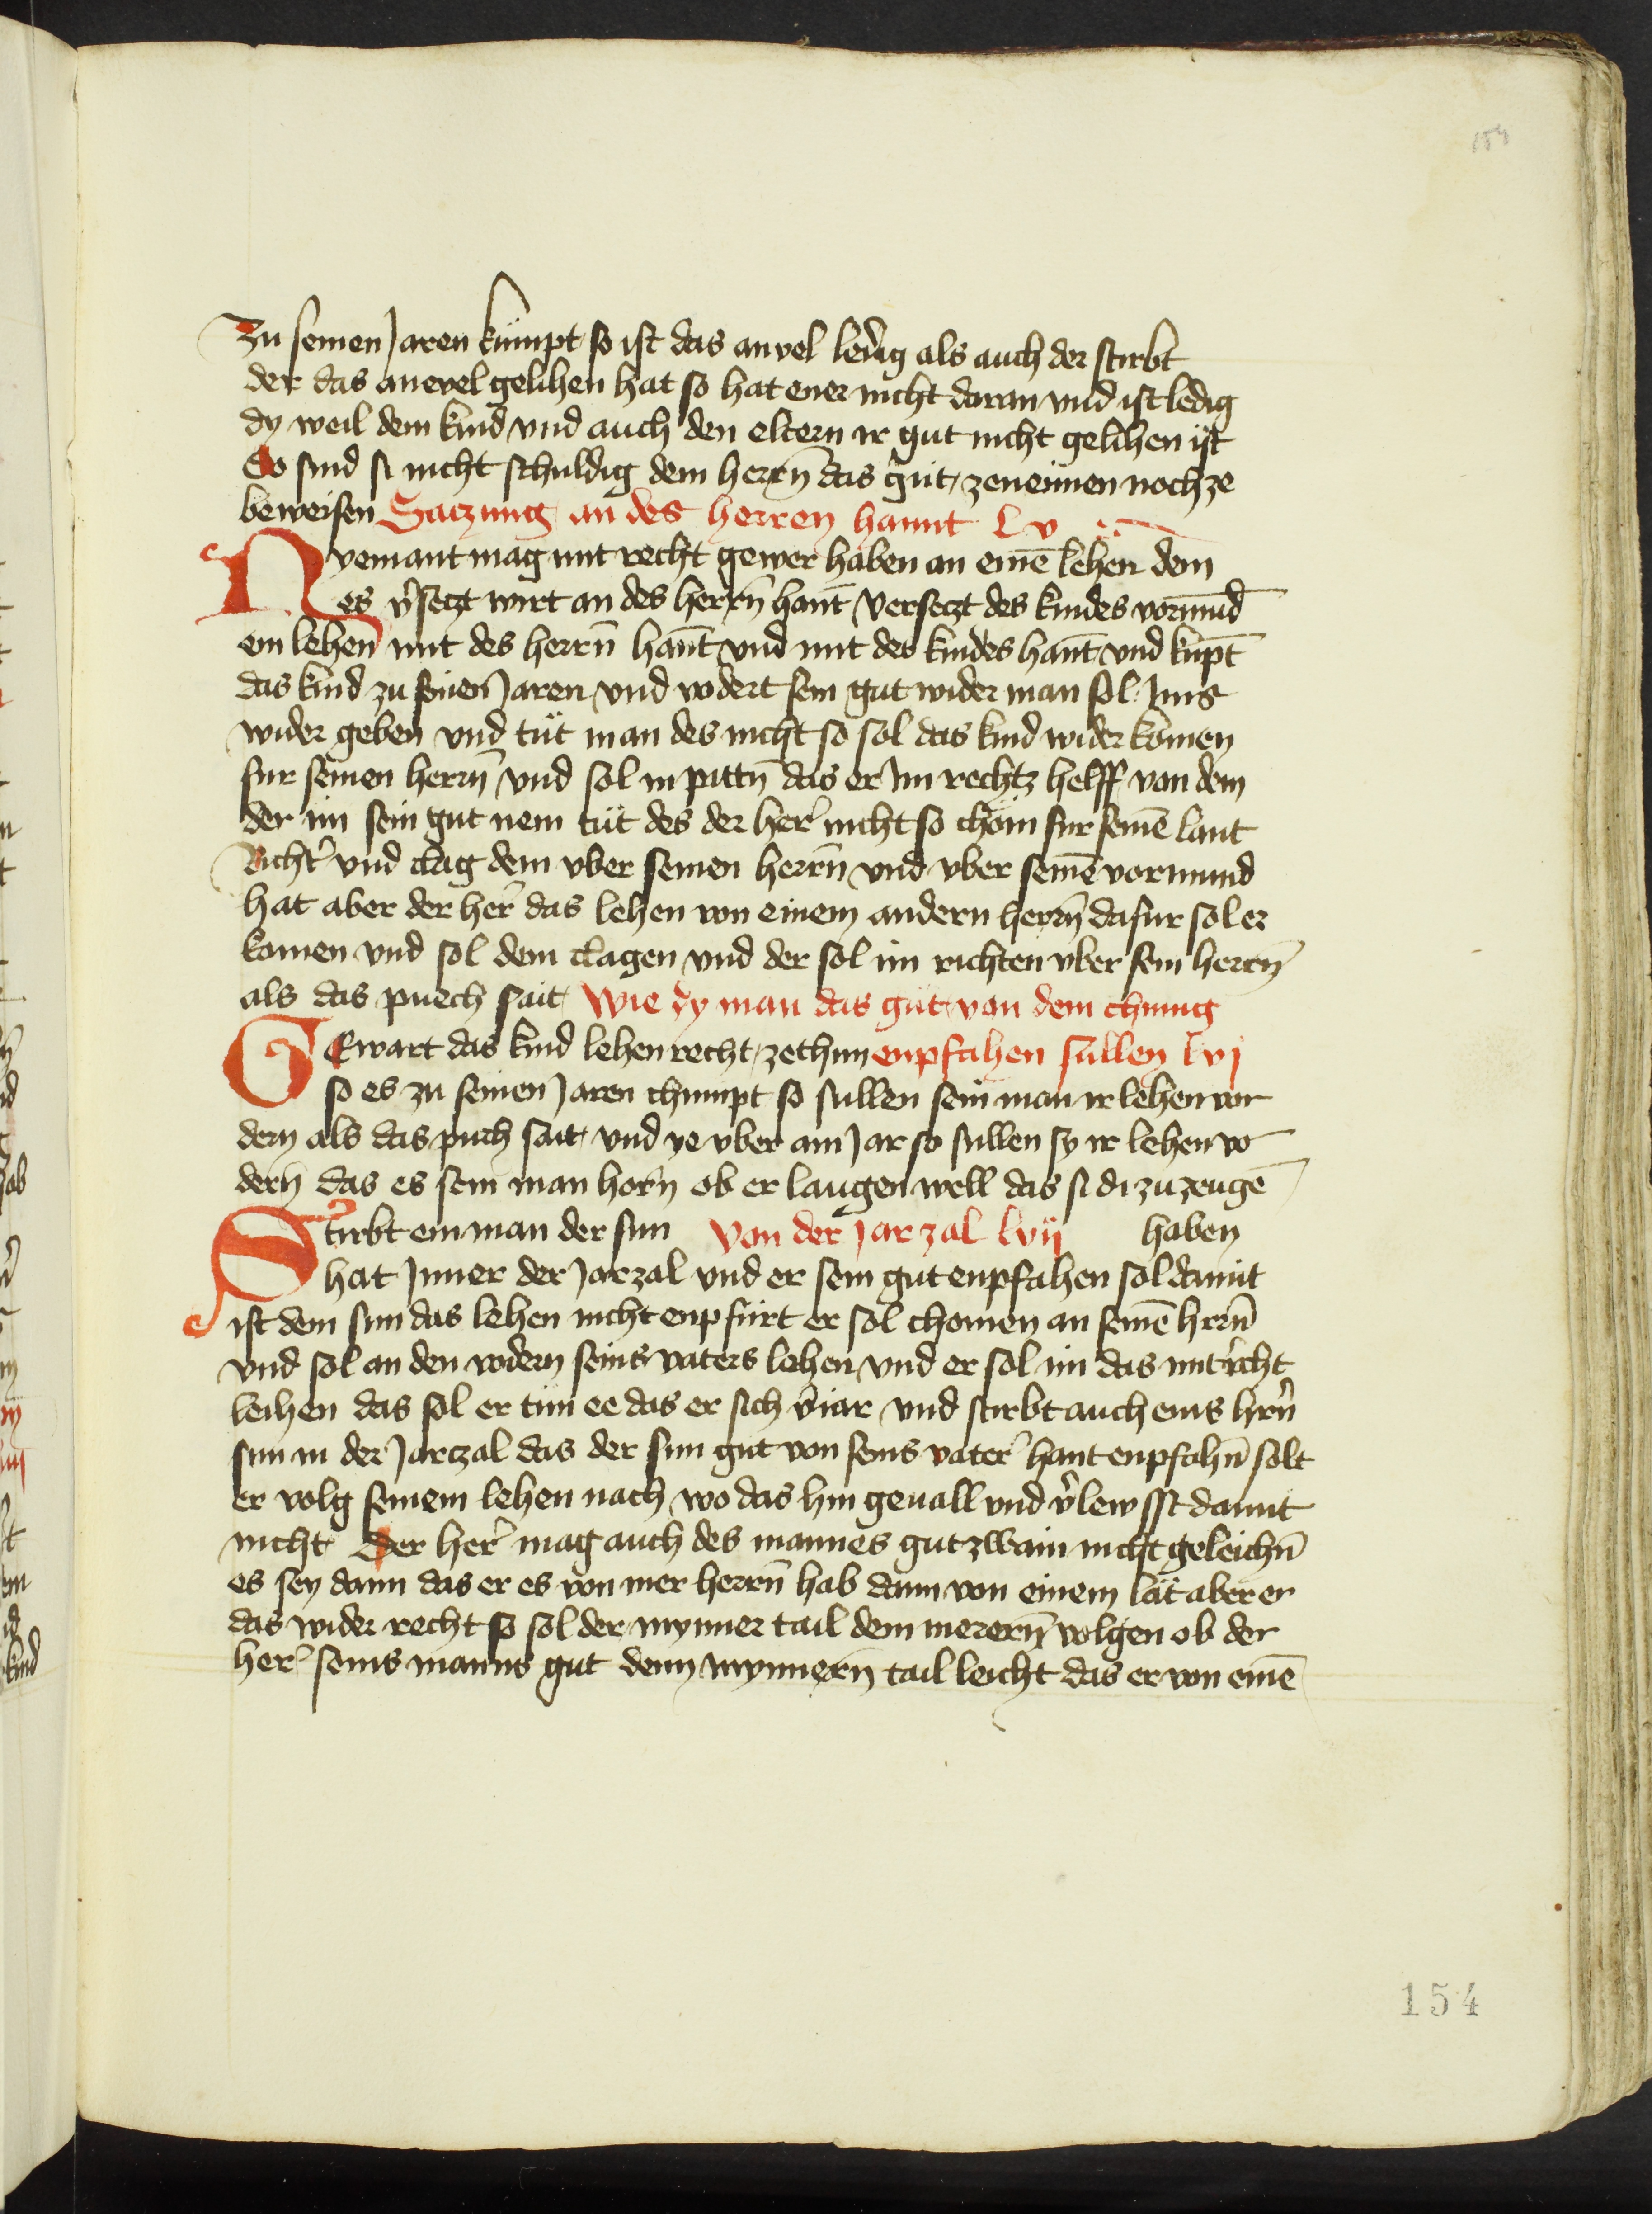 154
Zu seinen Jaren kumpt so ist das anvel ledig als auch der stirbt
der das anevel gelihen hat so hat ener nicht daran vnd ist ledig
dy weil dem kind vnd auch den eltern ir gut nicht gelihen ist
So sind si nicht schuldig dem herrn̄ das gut zenennen noch ze
beweisen Saczung an des herren hannt Lv
Nyemant mag mit recht gewer haben an einē lehen dem
es v̾seczt wirt an des herrn̄ hant̄ verseczt des kindes vormūd
ein lehen mit des herrn̄ hant̄ vnd mit des kindes hant̄ vnd kupt̄
das kind zu seinen Jaren vnd vodert sein gut wider man sol Jms
wider geben vnd tüt man des nicht so sol das kind wider komen
fur seinen herrn̄ vnd sol in pittn̄ das er im rechtz helff von dem
der im sein gut nem tüt des der her̾ nicht so chöm fur seinē lant
Richt̾ vnd clag dem vber seinen herrn̄ vnd vber seinē vormund
hat aber der her̾ das lehen von einem andern herrn̄ dafur sol er
komen vnd sol dem clagen vnd der sol im richten vber sein herrn̄
als das puech sait Wie dy man das gut von dem chinng
GEwart das kind lehen recht zethun enpfahen sullen lvj
so es zu seinen Jaren chumpt so sullen sein man ir lehen vor
dern als das puch sait vnd ye vber ain Jar so sullen sy ir lehen vo
dern̄ das es sein man horn̄ ob er laugen well das si di zu zeugē
Stirbt ein man der sun Von der Jar zal lvij haben
hat Jnner der Jarzal vnd er sein gut enpfahen sol damit
ist dem sun das lehen nicht enpfürt er sol chomen an seinē hern̄
vnd sol an den vodern seins vaters lehen vnd er sol im das mit recht
leihen das sol er tun ee das er sich v̾iar vnd stirbt auch eins hern̄
sun in der Jarczal das der sun gut von seins vater̾ hant enpfahn̄ solt
er volg seinem lehen nach wo das hin geuall vnd v̾lewsst damit
nicht Der her̾ mag auch des mannes gut zwain nicht geleichn̄
es sey dann das er es von mer herrn̄ hab dann von einem lät aber er
das wider recht so sol der mynner tail dem merern̄ volgen ob der
her̾ seins manns gut dem mynnern̄ tail leicht das er von einē
154